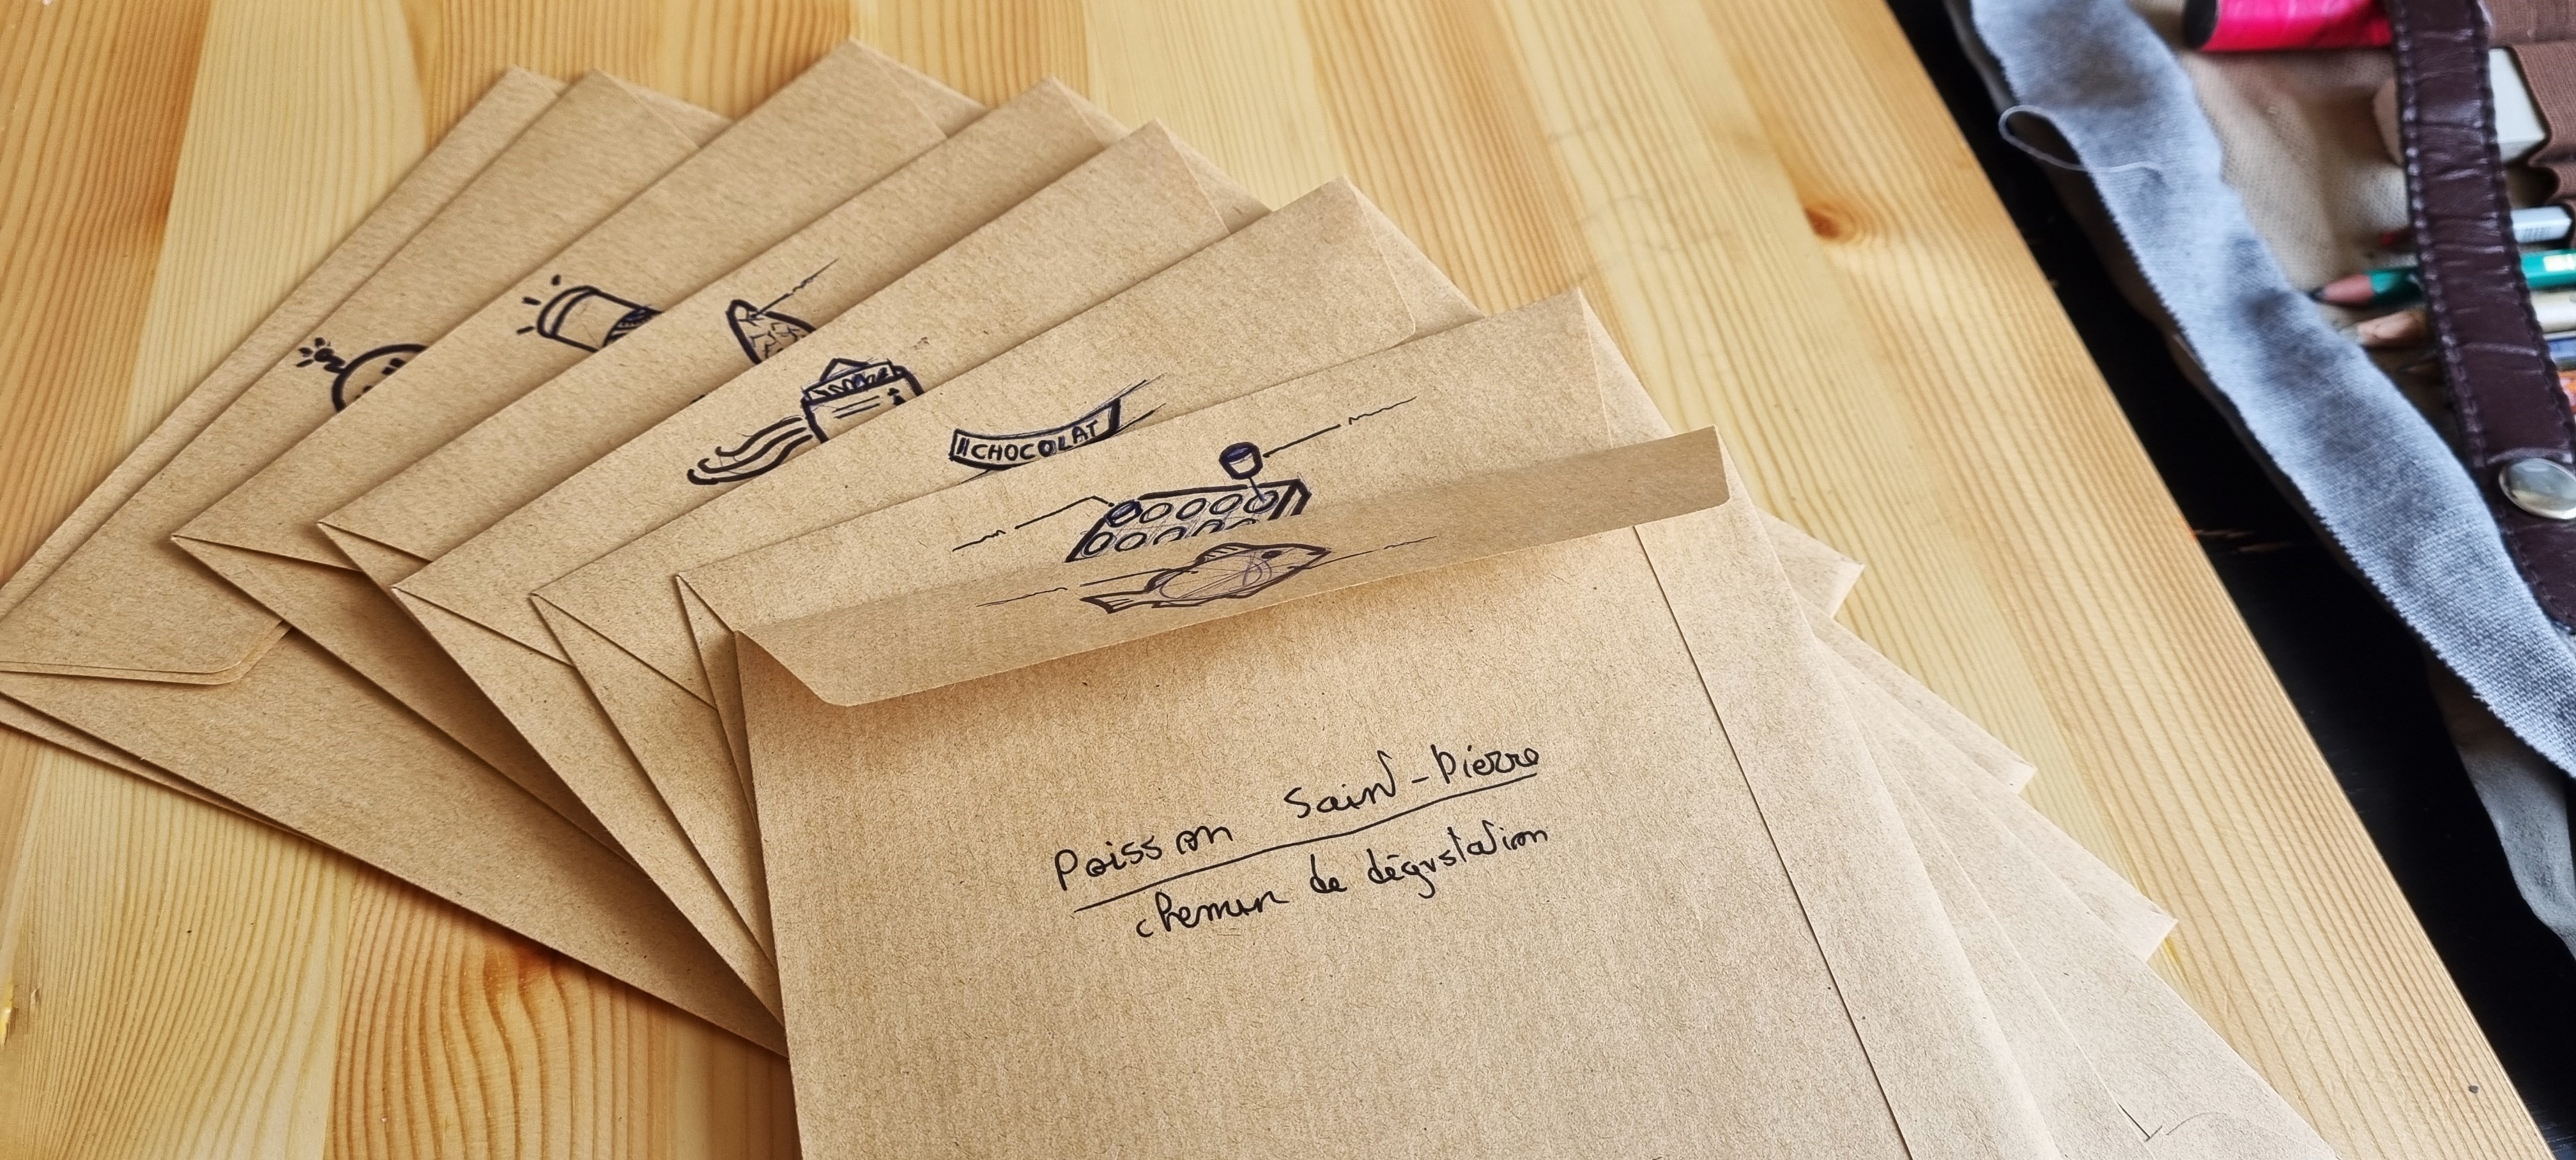 CHOCOLAT
Poisson Saint-Pierre
chemin de dégustation